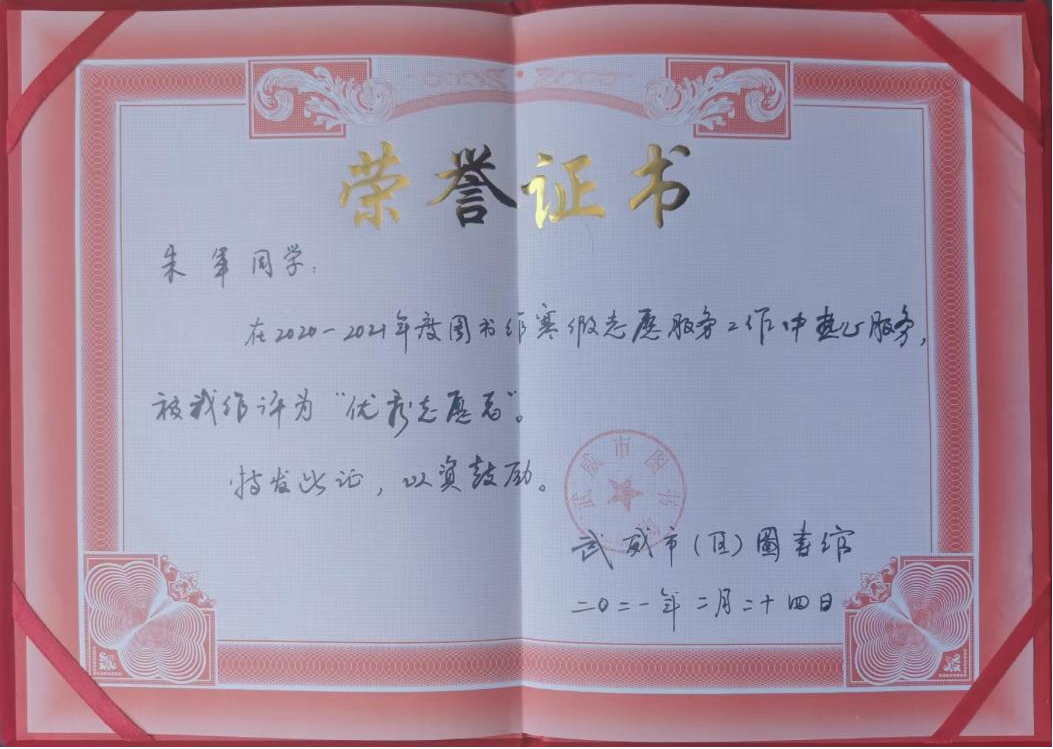 荣誉证书
朱军同学：
在2020-2021年度图书馆寒假志愿服务工作中热心服务，
被我馆评为“优秀志愿者”。
特发此证，以资鼓励。
武威市图书馆
武威市（区）圖書馆
二〇二一年二月二十四日